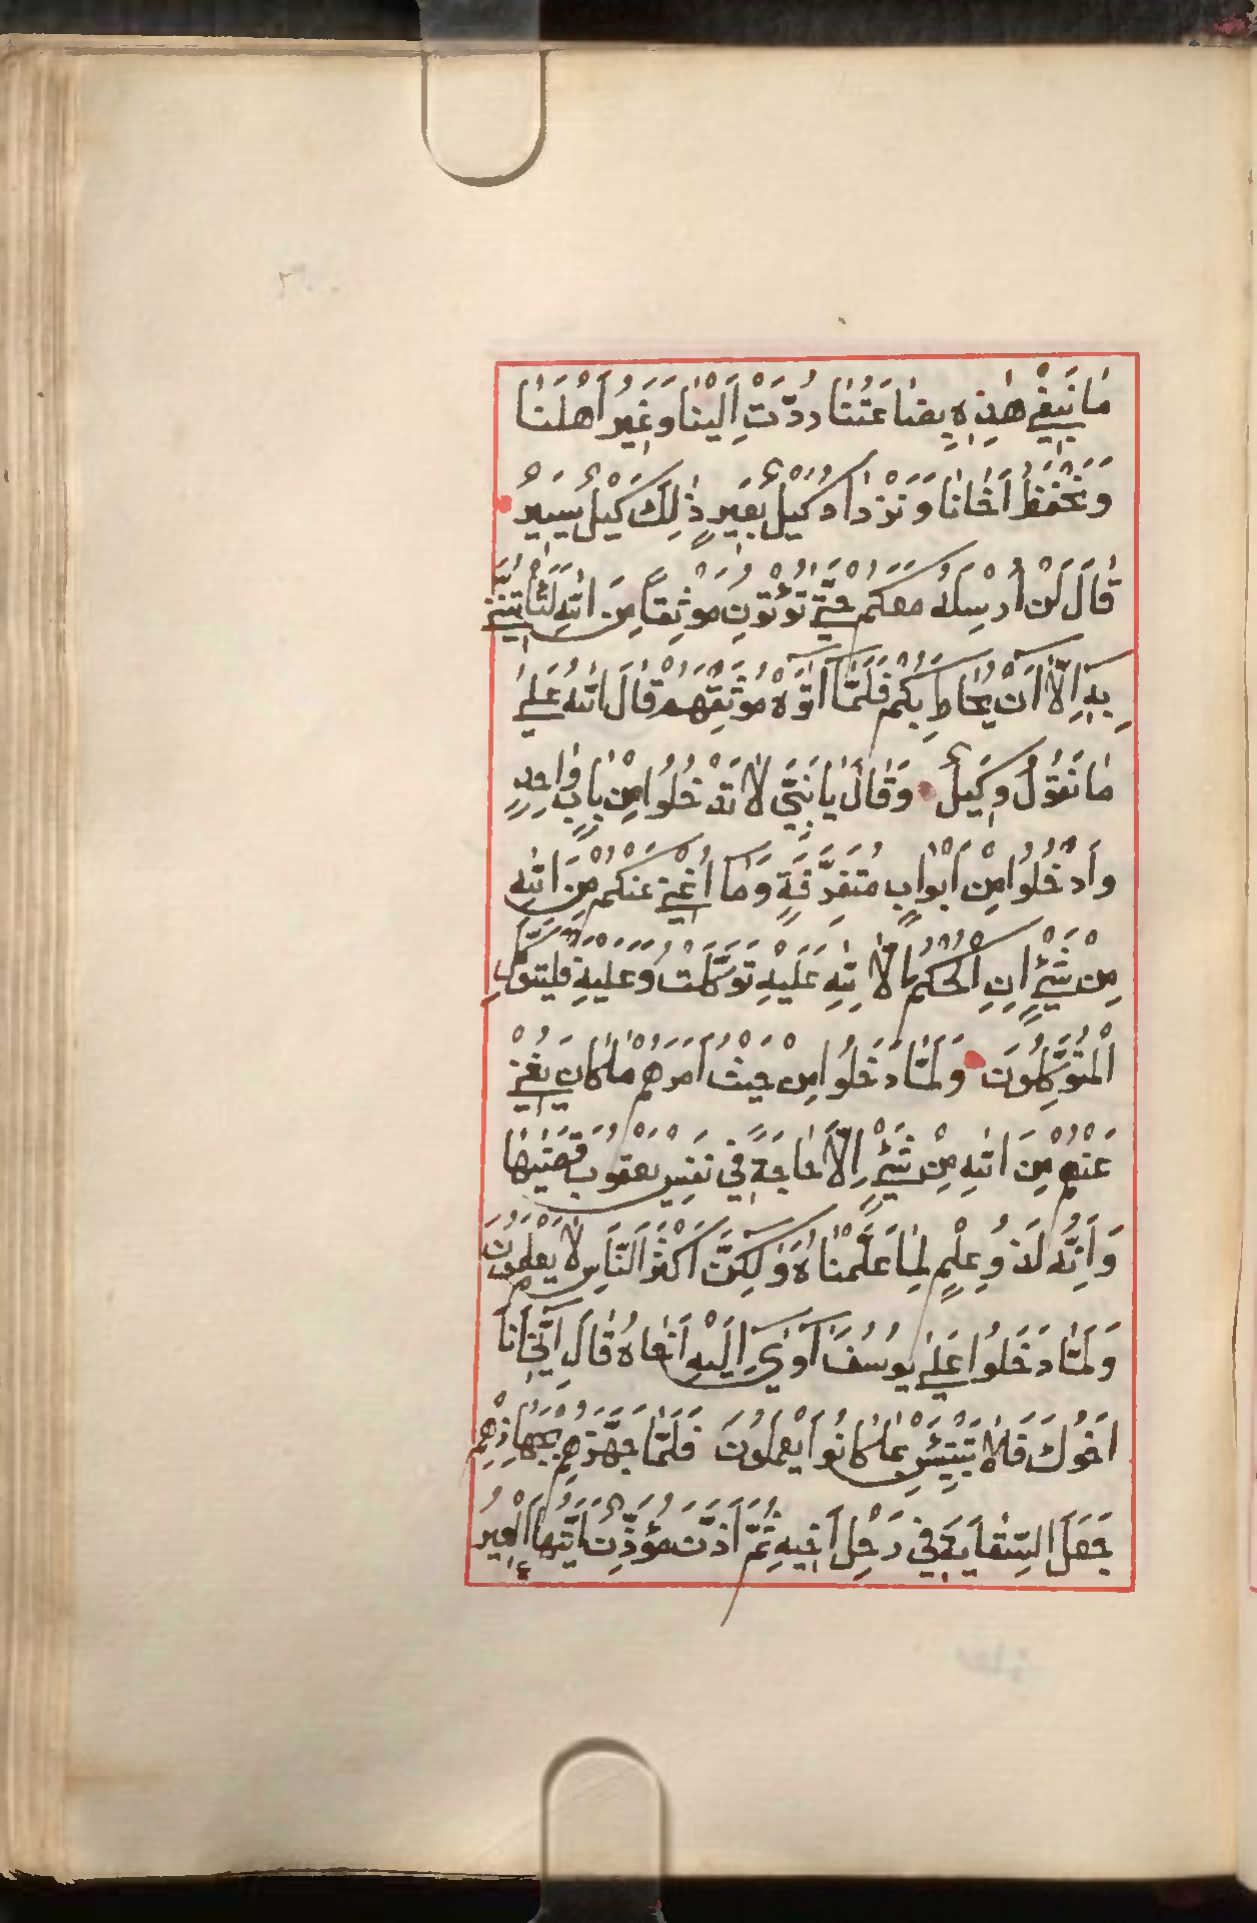 مَا نَبْغِي هٰذِهِ بِضَاعَتُنَا رُدَّتْ اِلَيْنَا وَنَمِيرُ اَهْلَنَا
وَنَحْفَظُ اَخَانَا وَنَزْدَادُ كَيْلَ بَعِيرٍ ذٰلِكَ كَيْلٌ يَسِيرٌ
قَالَ لَنْ اُرْسِلَهُ مَعَكُمْ حَتّٰي تُؤْتُونِ مَوْثِقًا مِنَ اللهِ لَتَأْتُنَّنِي
بِهِ اِلَّا اَنْ يُحَاطَ بِكُمْ فَلَمَّا اٰتَوْهُ مَوْثِقَهُمْ قَالَ اللهُ عَلٰي
مَا نَقُولُ وَكِيلٌ وَقَالَ يَا بَنِيَّ لَا تَدْخُلُوا مِنْ بَابٍ وَاحِدٍ
وَادْخُلُوا مِنْ اَبْوَابٍ مُتَفَرِّقَةٍ وَمَا اُغْنِي عَنْكُمْ مِنَ اللهِ
مِنْ شَيْءٍ اِنِ الْحُكْمُ اِلَّا لِلّٰهِ عَلَيْهِ تَوَكَّلْتُ وَعَلَيْهِ فَلْيَتَوَكَّلِ
الْمُتَوَكِّلُونَ وَلَمَّا دَخَلُوا مِنْ حَيْثُ اَمَرَهُمْ مَا كَانَ يُغْنِي
عَنْهُمْ مِنَ اللهِ مِنْ شَيْءٍ اِلَّا حَاجَةً فِي نَفْسِ يَعْقُوبَ قَضٰيهَا
وَاِنَّهُ لَذُو عِلْمٍ لِمَا عَلَّمْنَاهُ وَلٰكِنَّ اَكْثَرَ النَّاسِ لَا يَعْلَمُونَ
وَلَمَّا دَخَلُوا عَلٰي يُوسُفَ اٰوٰي اِلَيْهِ اَخَاهُ قَالَ اِنِّي اَنَا
اَخُوكَ فَلَا تَبْتَئِسْ بِمَا كَانُوا يَعْمَلُونَ فَلَمَّا جَهَّزَهُمْ بِجَهَازِهِمْ
جَعَلَ السِّقَايَةَ فِي رَحْلِ اَخِيهِ ثُمَّ اَذَّنَ مُؤَذِّنٌ اَيَّتُهَا الْعِيرُ